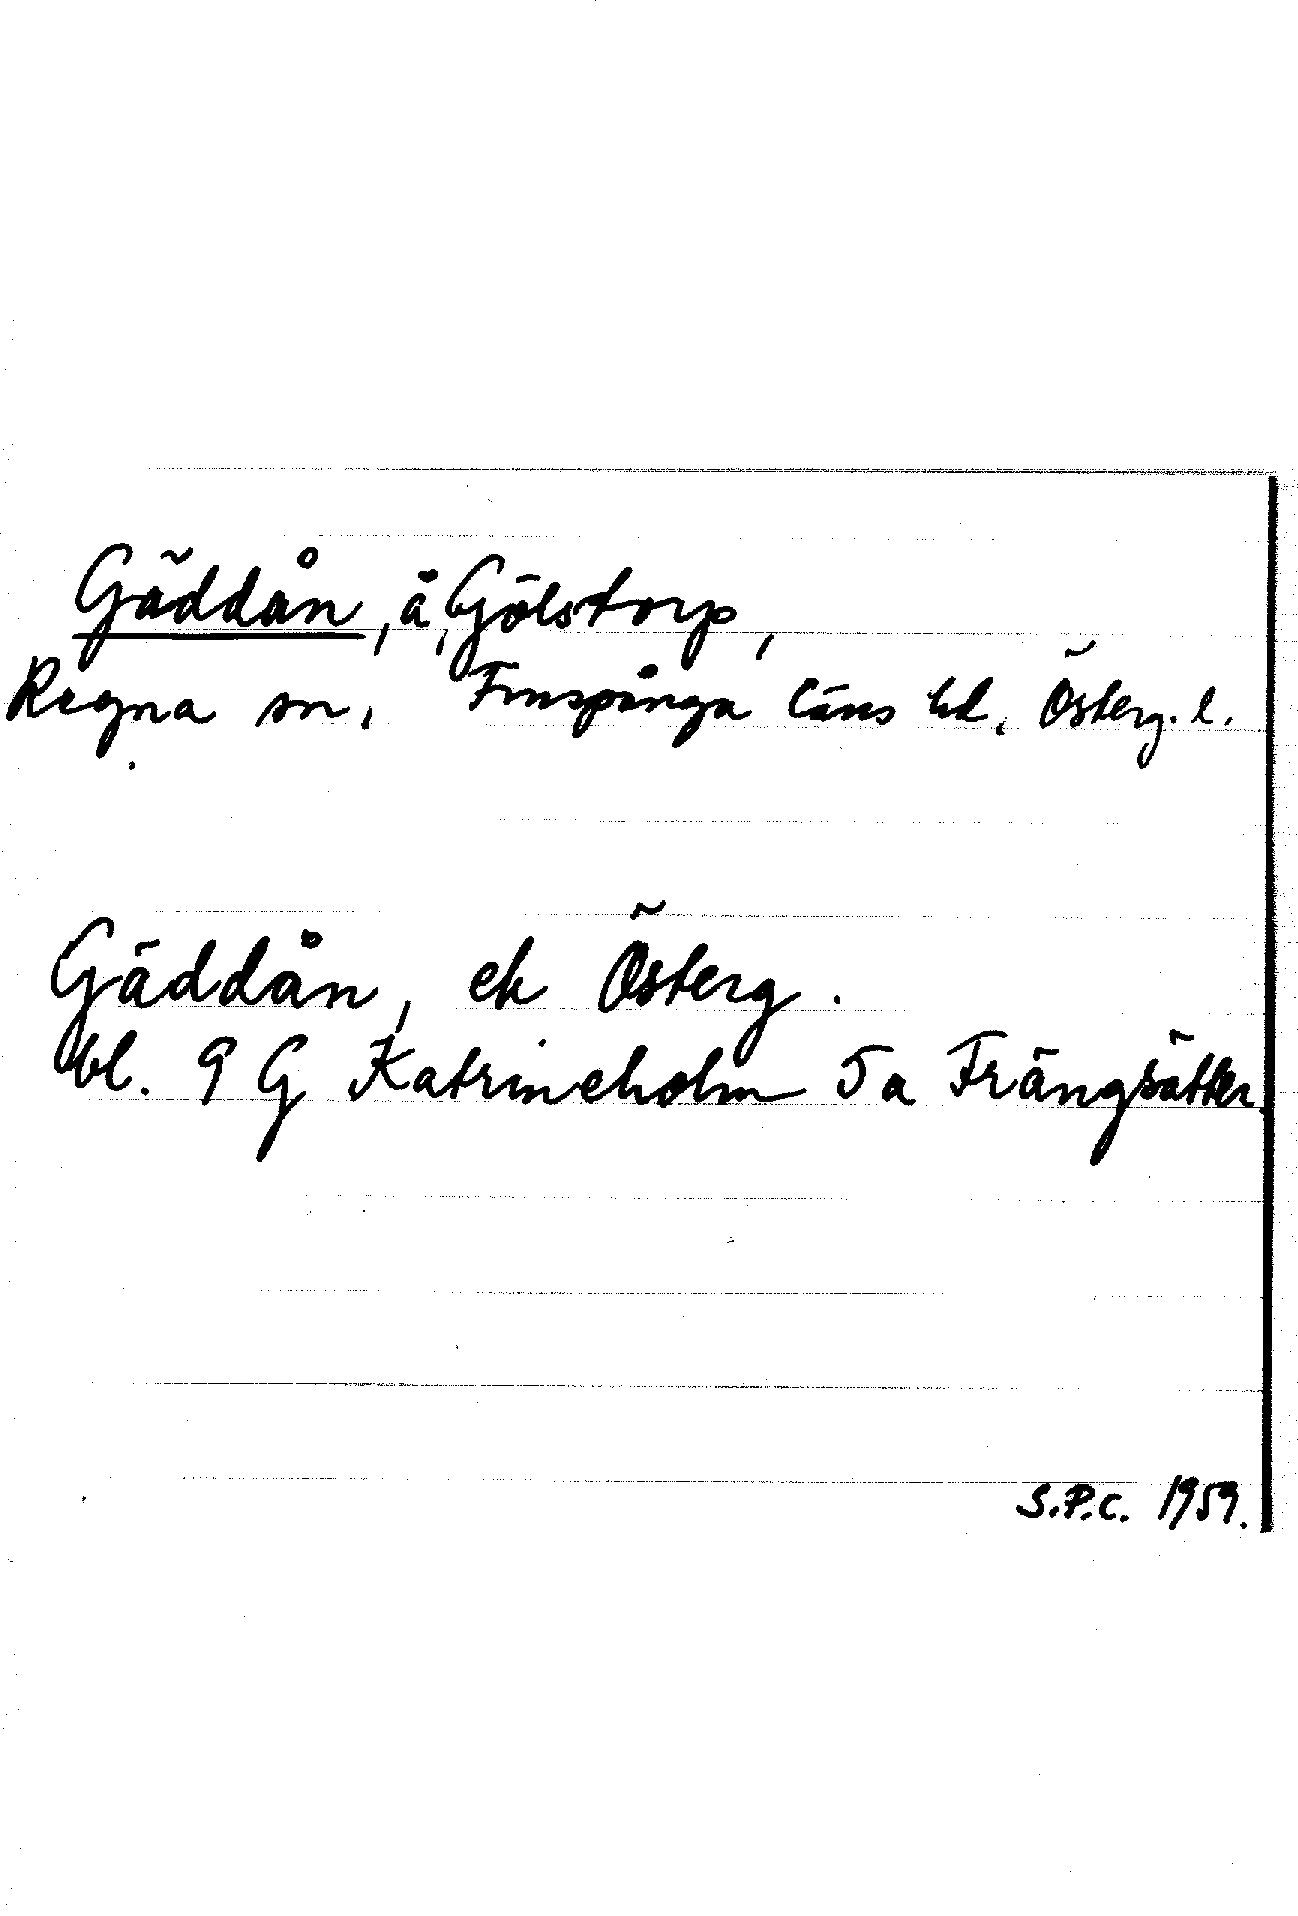 Gäddån, å, Gölstorp,
Regna sn, Finspånga läns hd, Österg. l.
Gäddån, ek Österg.
bl. 9 G Katrineholm 5a Frängsätter.
S.P.C. 1959.